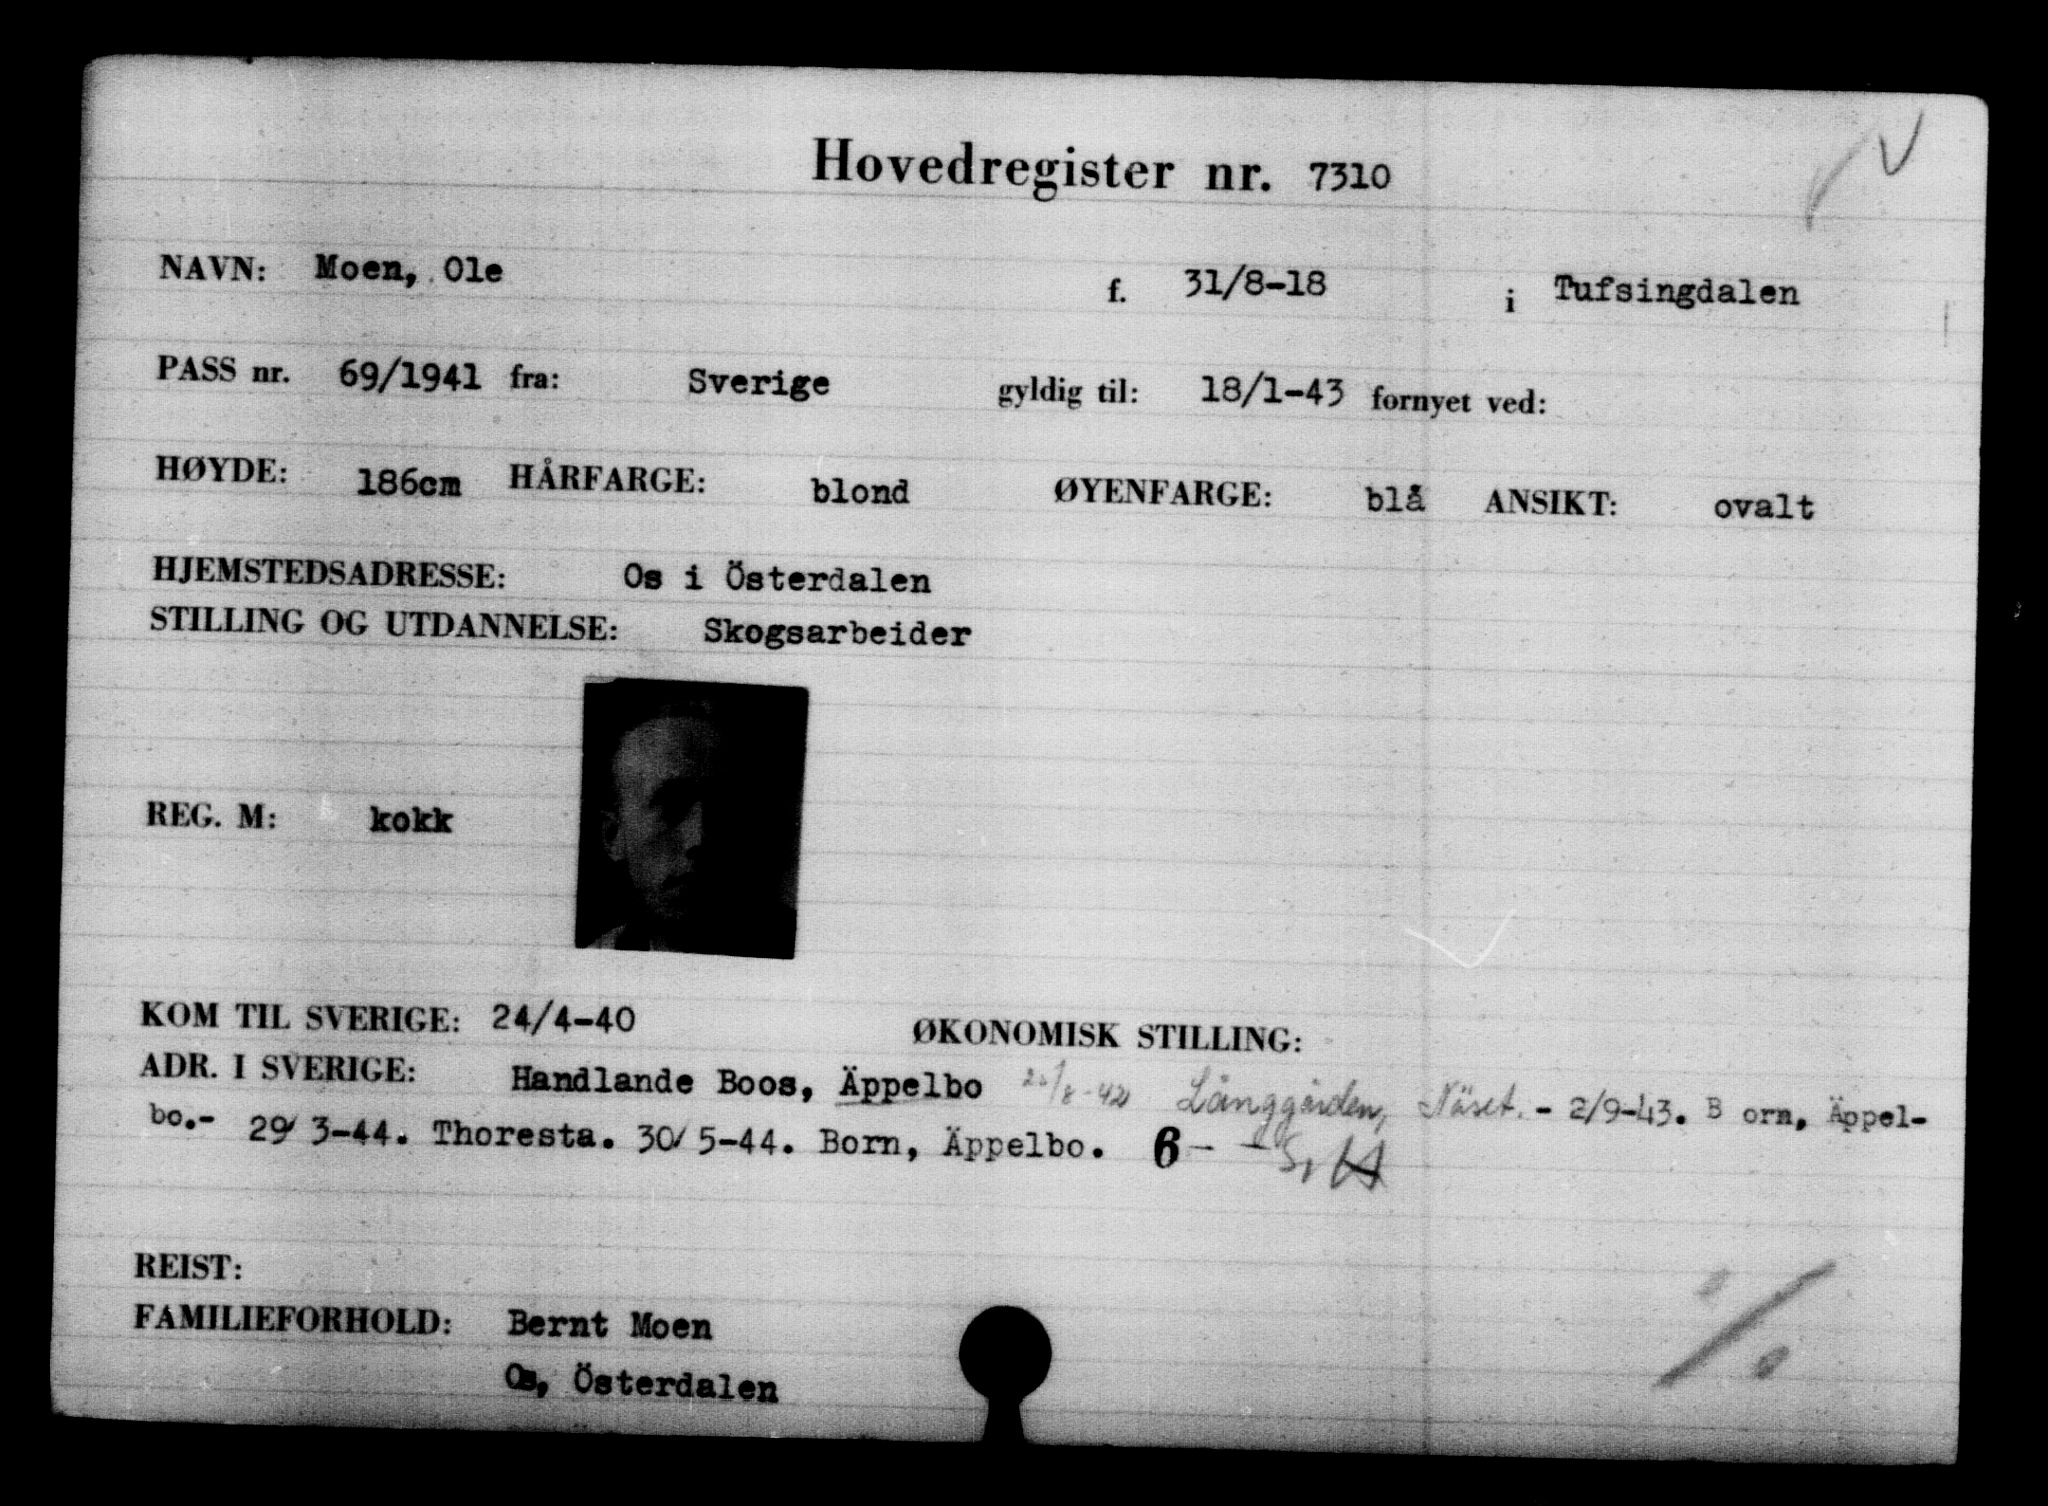 Hovedregister nr. 7310
NAVN: Moen, Ole f. 31/8-18 i Tufsingdalen
PASS nr. 69/1941 fra: Sverige gyldig til: 18/1-43 fornyet ved:
HØYDE: 186cm HÅRFARGE: blond ØYENFARGE: blå ANSIKT: ovalt
HJEMSTEDSADRESSE: Os i Österdalen
STILLING OG UTDANNELSE: Skogsarbeider
REG. M: kokk
KOM TIL SVERIGE: 24/4-40 ØKONOMISK STILLING:
ADR. I SVERIGE: Handlande Boos, Äppelbo Långgården, Näset. - 2/9-43. B orn, Äppel-
bo.- 29/ 3-44. Thoresta. 30/ 5-44. Born, Äppelbo. 6-
REIST:
FAMILIEFORHOLD: Bernt Moen
Os, Österdalen